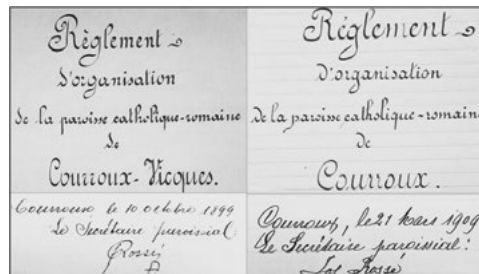 Règlement
d'organisation
de la paroisse catholique-romaine
de
Courroux-Vicques.
Courroux le 10 octobre 1899
Le Secrétaire paroissial
Rossé
Réglement
d'organisation
de la paroisse catholique-romaine
de
Courroux.
Courroux, le 21 Mars 1909
Le Secrétaire paroissial:
Jos Rossé